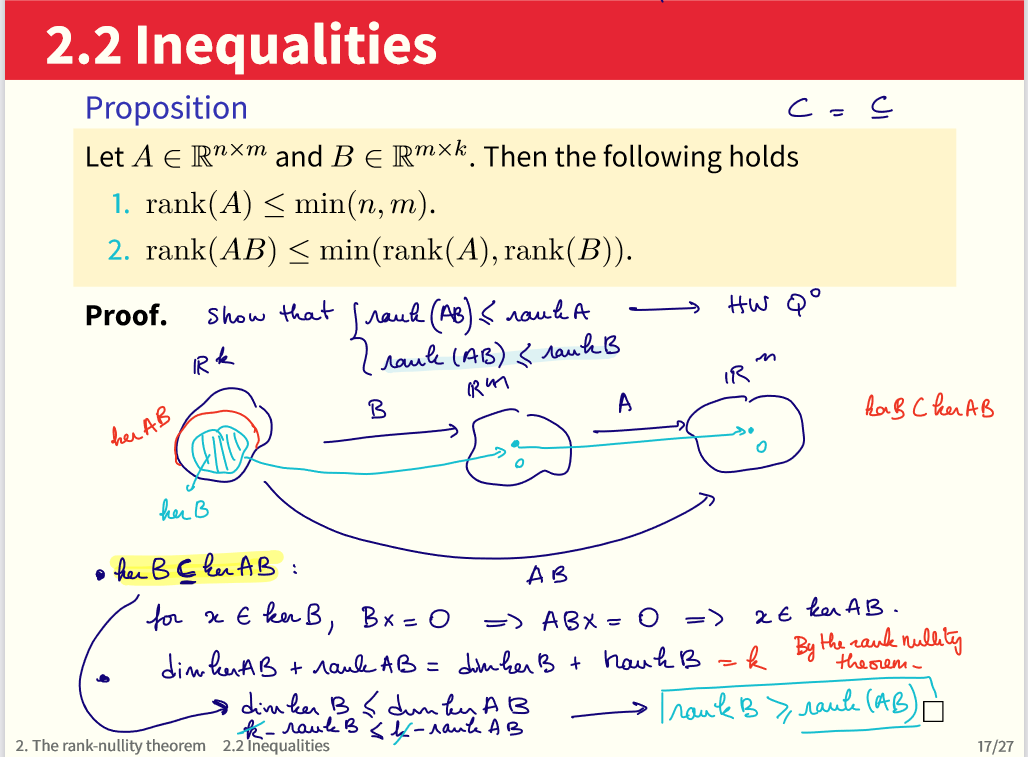 2.2 Inequalities
Proposition
⊂ = ⊆
Let A ∈ ℝ^{n×m} and B ∈ ℝ^{m×k}. Then the following holds
1. rank(A) ≤ min(n, m).
2. rank(AB) ≤ min(rank(A), rank(B)).
Proof. Show that { rank (AB) ≤ rank A ⟶ HW Q°
rank (AB) ≤ rank B
ℝ^k ℝ^m ℝ^n
B A
ker AB
ker B ⊂ ker AB
0 0
ker B
AB
• ker B ⊆ ker AB :
for x ∈ ker B, Bx = 0 => ABx = 0 => x ∈ ker AB.
• dim ker AB + rank AB = dim ker B + rank B = k By the rank nullity theorem.
dim ker B ≤ dim ker AB ⟶ rank B ≥ rank (AB) □
k - rank B ≤ k - rank AB
2. The rank-nullity theorem 2.2 Inequalities 17/27